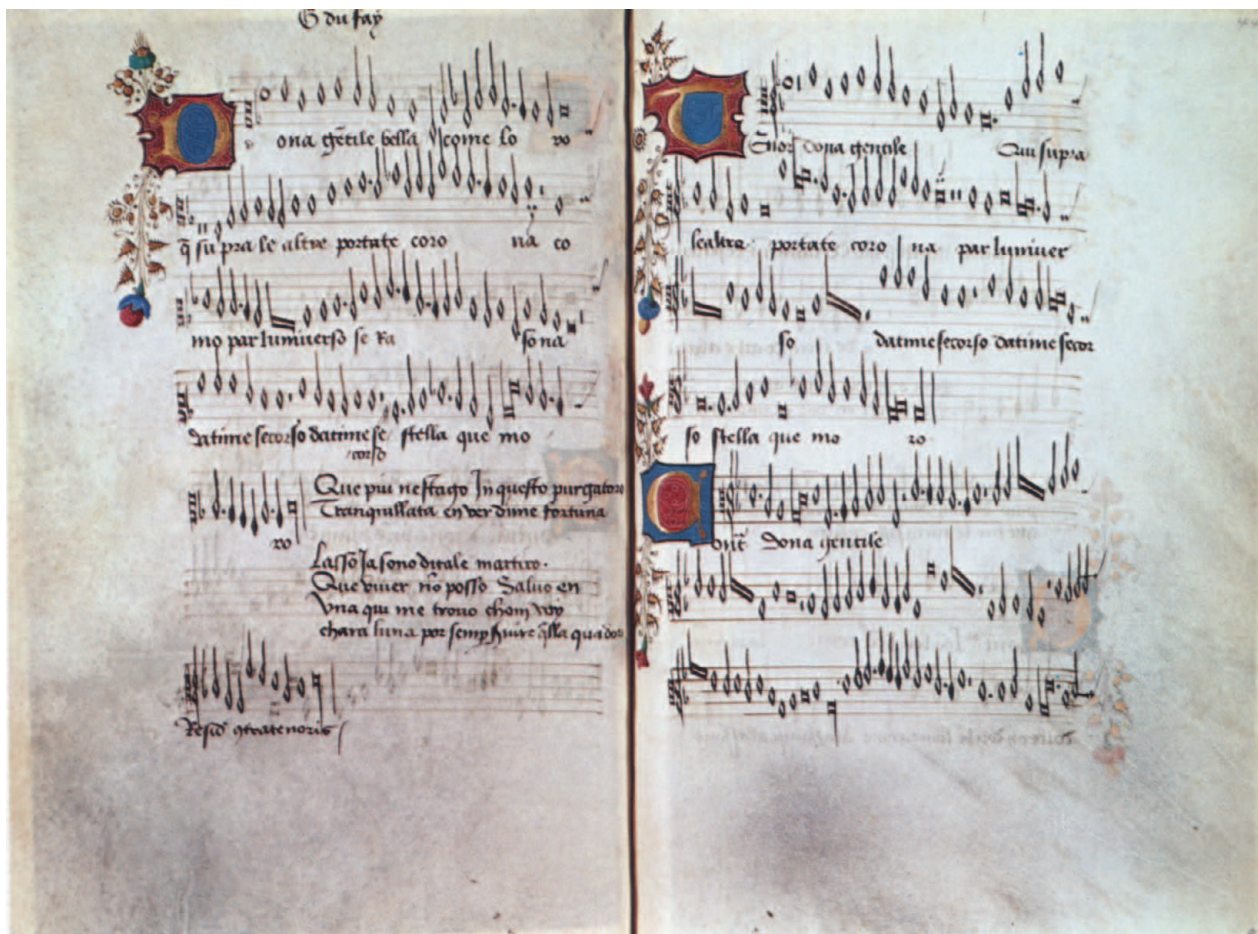 G du fay
ona gẽtile bella come lo ro
q̃ su pra le altre portate coro na co
mo par lumiuerso se Ra sona
datime secorso datime se stella que mo
corso
Que piu nestago In questo purgatori
Tranquillata en ver dime fortuna
ro
Lasso Ja sono di tale martiro.
Que viuer nõ posso Saluo en
Vna qui me trouo chom
chara luna por semp q̃lla
Resid 9tratenoris
Enor dona gentile Qui supra
le altre portate coro na par lumiuer
so datime secorso datime secor
so stella que mo ro
ont̃ Dona gentile